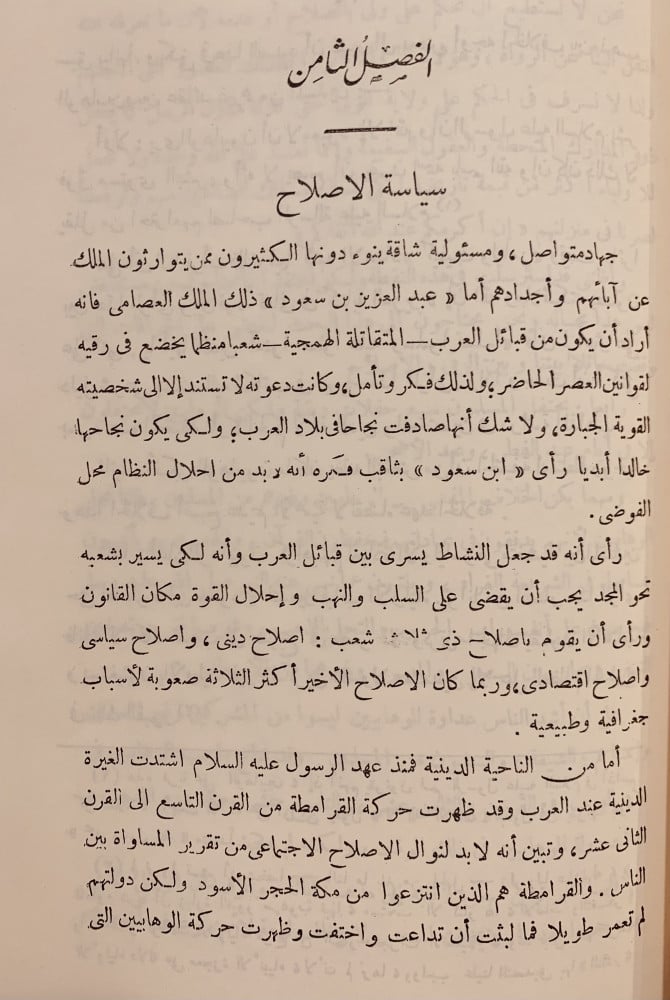 الفصل الثامن
سياسة الاصلاح
جهاد متواصل، ومسئولية شاقة ينوء دونها الكثيرون ممن يتوارثون الملك
عن آبائهم وأجدادهم أما « عبد العزيز بن سعود » ذلك الملك العصامى فانه
أراد أن يكون من قبائل العرب – المتقاتلة الهمجية – شعبا منظما يخضع فى رقيه
لقوانين العصر الحاضر، ولذلك فكر وتأمل، وكانت دعوته لا تستند إلا الى شخصيته
القوية الجبارة، ولا شك أنها صادفت نجاحا فى بلاد العرب، ولكى يكون نجاحها
خالدا أبديا رأى « ابن سعود » بثاقب فكره أنه لا بد من احلال النظام محل
الفوضى .
رأى أنه قد جعل النشاط يسرى بين قبائل العرب وأنه لكى يسير بشعبه
نحو المجد يجب أن يقضى على السلب والنهب و إحلال القوة مكان القانون
ورأى أن يقوم باصلاح ذى ثلاث شعب : اصلاح دينى ، واصلاح سياسى
واصلاح اقتصادى، وربما كان الاصلاح الأخير أكثر الثلاثة صعوبة لأسباب
جغرافية وطبيعية .
أما من الناحية الدينية فمنذ عهد الرسول عليه السلام اشتدت الغيرة
الدينية عند العرب وقد ظهرت حركة القرامطة من القرن التاسع الى القرن
الثانى عشر، وتبين أنه لابد لنوال الاصلاح الاجتماعى من تقرير المساواة بين
الناس . والقرامطة هم الذين انتزعوا من مكة الحجر الأسود ولكن دولتهم
لم تعمر طويلا فما لبثت أن تداعت واختفت وظهرت حركة الوهابيين التى